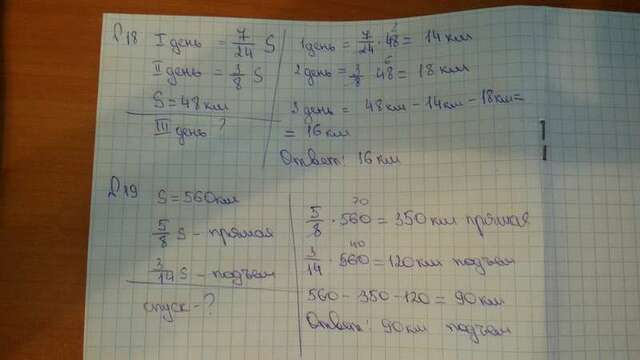 №18
I день = 7/24 S
II день = 3/8 S
S = 48 км
III день ?
1 день = 7/24 · 48 = 14 км
2 день = 3/8 · 48 = 18 км
3 день = 48 км - 14 км - 18 км =
= 16 км
Ответ: 16 км
№19
S = 560 км
5/8 S - прямая
3/14 S - подъем
спуск - ?
5/8 · 560 = 350 км прямая
3/14 · 560 = 120 км подъем
560 - 350 - 120 = 90 км
Ответ: 90 км подъем